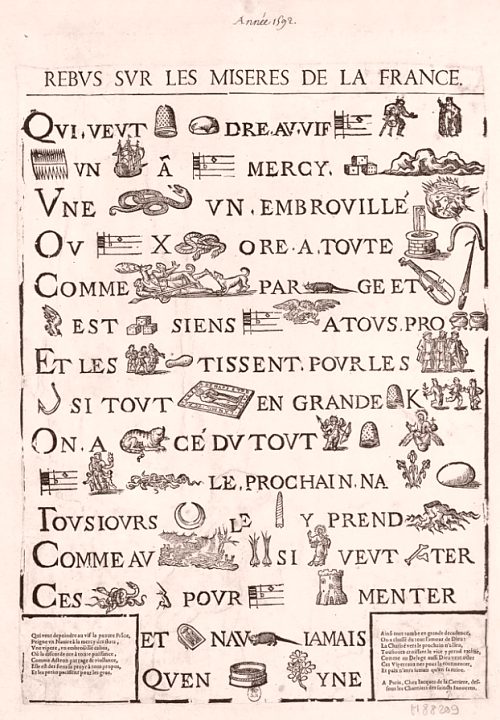 Année 1592.
REBVS SVR LES MISERES DE LA FRANCE.
QVI. VEVT DRE. AV. VIF
VN Ã MERCY.
VNE VN. EMBROVILLÉ
OV X ORE. A. TOVTE
COMME PAR GE ET
EST SIENS ATOVS. PRO
ET LES TISSENT. POVR LES
SI TOVT EN GRANDE K
ON. A CÉ DV TOVT
LE. PROCHAIN. NA
TOVSIOVRS LE Y PREND
COMME AV SI VEVT TER
CES POVR MENTER
ET NAV IAMAIS
QVEN YNE
Qui veut depeindre au vif la pauure
Peigne vn Nauire à la mercy des
Vne vipere, vn embrouillé
Où la discorde
Comme par rage &
Elle est des siens à tous
Et les petits patissent pour les gros.
Ainsi tout tombe en grande decadence,
On a chassé du tout l'amour de Dieu:
La Charité vers le prochain n'a lieu,
Tousiours croissant le vice y prend
Comme au Deluge aussi Dieu veut
Ces Viperaux nez pour la
Et paix n'aura iamais qu'en sa ruine.
A Paris, Chez Iacques de la Carriere,
sous les Charniers des saincts Innocens.
H 88209